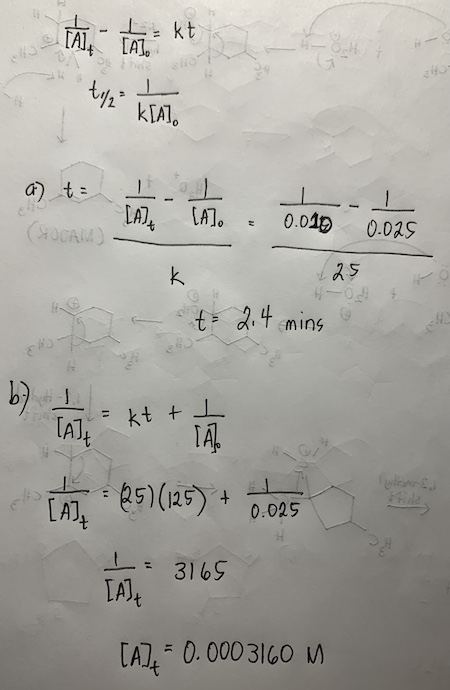 1/[A]t - 1/[A]₀ = kt
t1/2 = 1/k[A]₀
a) t = (1/[A]t - 1/[A]₀)/k = (1/0.010 - 1/0.025)/25
t = 2.4 mins
b) 1/[A]t = kt + 1/[A]₀
1/[A]t = (25)(125) + 1/0.025
1/[A]t = 3165
[A]t = 0.0003160 M